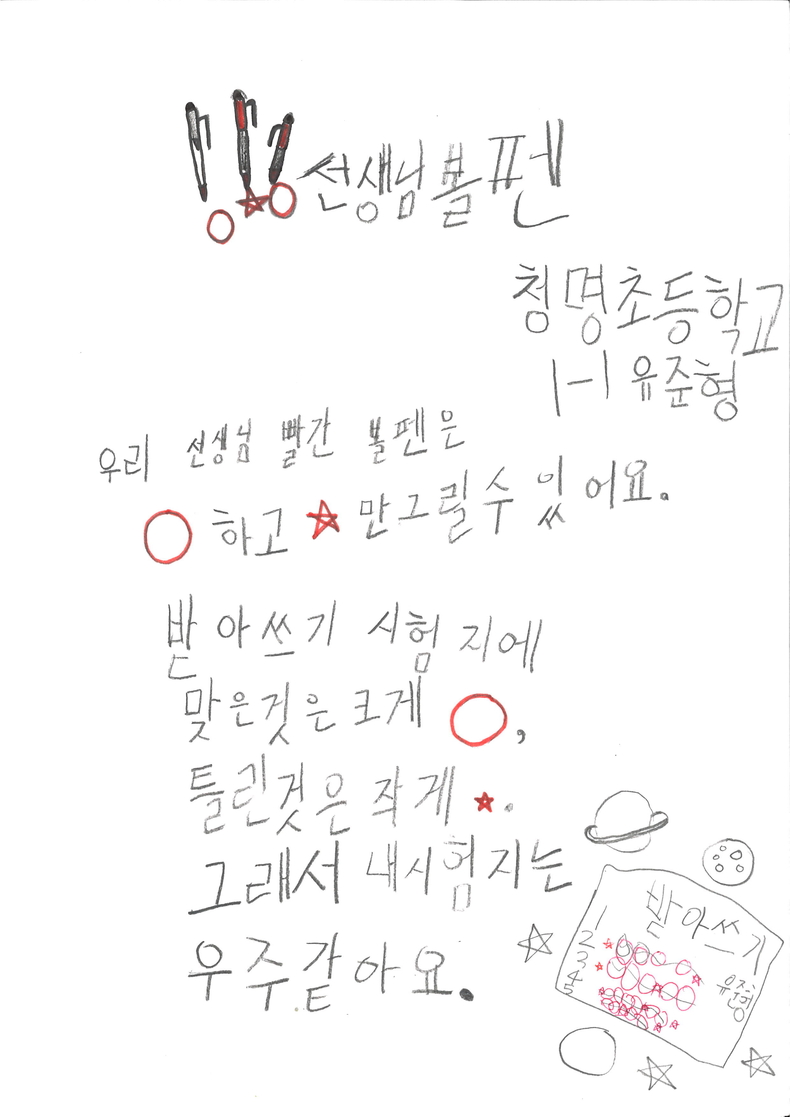 선생님볼펜
청명초등학교
1-1 유준형
우리 선생님 빨간 볼펜은
○ 하고 ☆ 만그릴수 있어요.
받아쓰기 시험지에
맞은것은 크게 ○,
틀린것은 작게 ★.
그래서 내시험지는
우주같아요.
받아쓰기
1
2
3
4
5
유준형